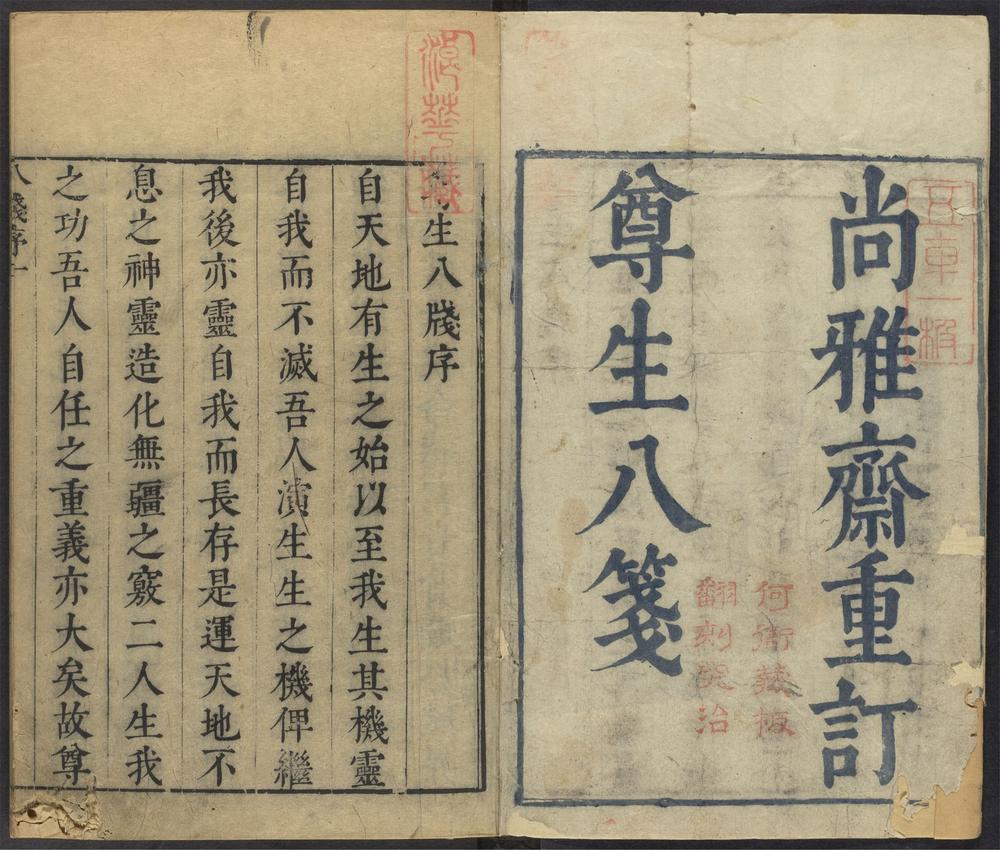 尚雅齋重訂
尊生八箋
何衙藏板
翻刻究治
生八牋序
自天地有生之始以至我生其機靈
自我而不滅吾人演生生之機俾繼
我後亦靈自我而長存是運天地不
息之神靈造化無疆之竅二人生我
之功吾人自任之重義亦大矣故尊
八牋序一